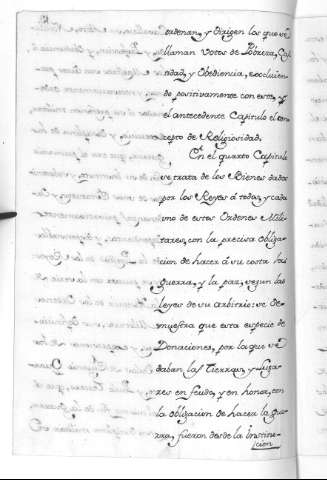 ordenan, y dirigen los que se
llaman Votos de Pobreza, Cas
tidad, y Obediencia, excluien
do positivamente con esto, y
el antecedente Capitulo el con
cepto de Religiosidad.
En el quarto Capitulo
se trata de los Bienes dados
por los Reyes á todas, y cada
uno de estos Ordenes Mili
tares, con la precisa obliga
cion de hacer á su costa la
guerra, y la paz, segun las
Leyes de su arbitrio: se de
muestra que esta especie de
Donaciones, por la que se
daban las Tierras, y Luga
res en feudo, y en honor, con
la obligacion de hacer la gue
rra, fueron desde la Institu
cion